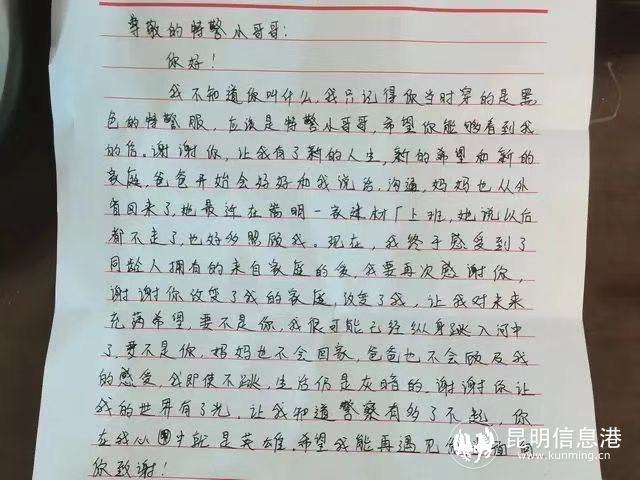 尊敬的特警小哥哥：
你好！
我不知道你叫什么，我只记得你当时穿的是黑
色的特警服，应该是特警小哥哥，希望你能够看到我
的信。谢谢你，让我有了新的人生，新的希望和新的
家庭，爸爸开始会好好和我说话，沟通，妈妈也从外
省回来了，她最近在嵩明一家建材厂上班，她说以后
都不走了，也好多照顾我。现在，我终于感受到了
同龄人拥有的来自家庭的爱，我要再次感谢你，
谢谢你改变了我的家庭，改变了我，让我对未来
充满希望，要不是你，我很可能已经纵身跳入河中
了，要不是你，妈妈也不会回家，爸爸也不会顾及我
的感受，我即使不跳，生活仍是灰暗的，谢谢你让
我的世界有了光，让我知道警察有多了不起，你
在我心中就是英雄。希望我能再遇见你 面向
你致谢！
昆明信息港
www.kunming.cn